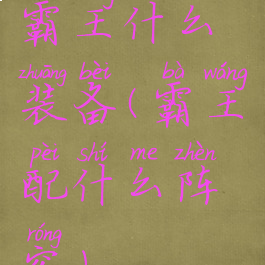 霸王什么
zhuāng bèi bà wáng
装备(霸王
pèi shí me zhèn
配什么阵
róng
容)